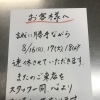 お客様へ
誠に勝手ながら
8/16(日),17(月),18(火)
連休させていただきます
またのご来店を
スタッフ一同 心より